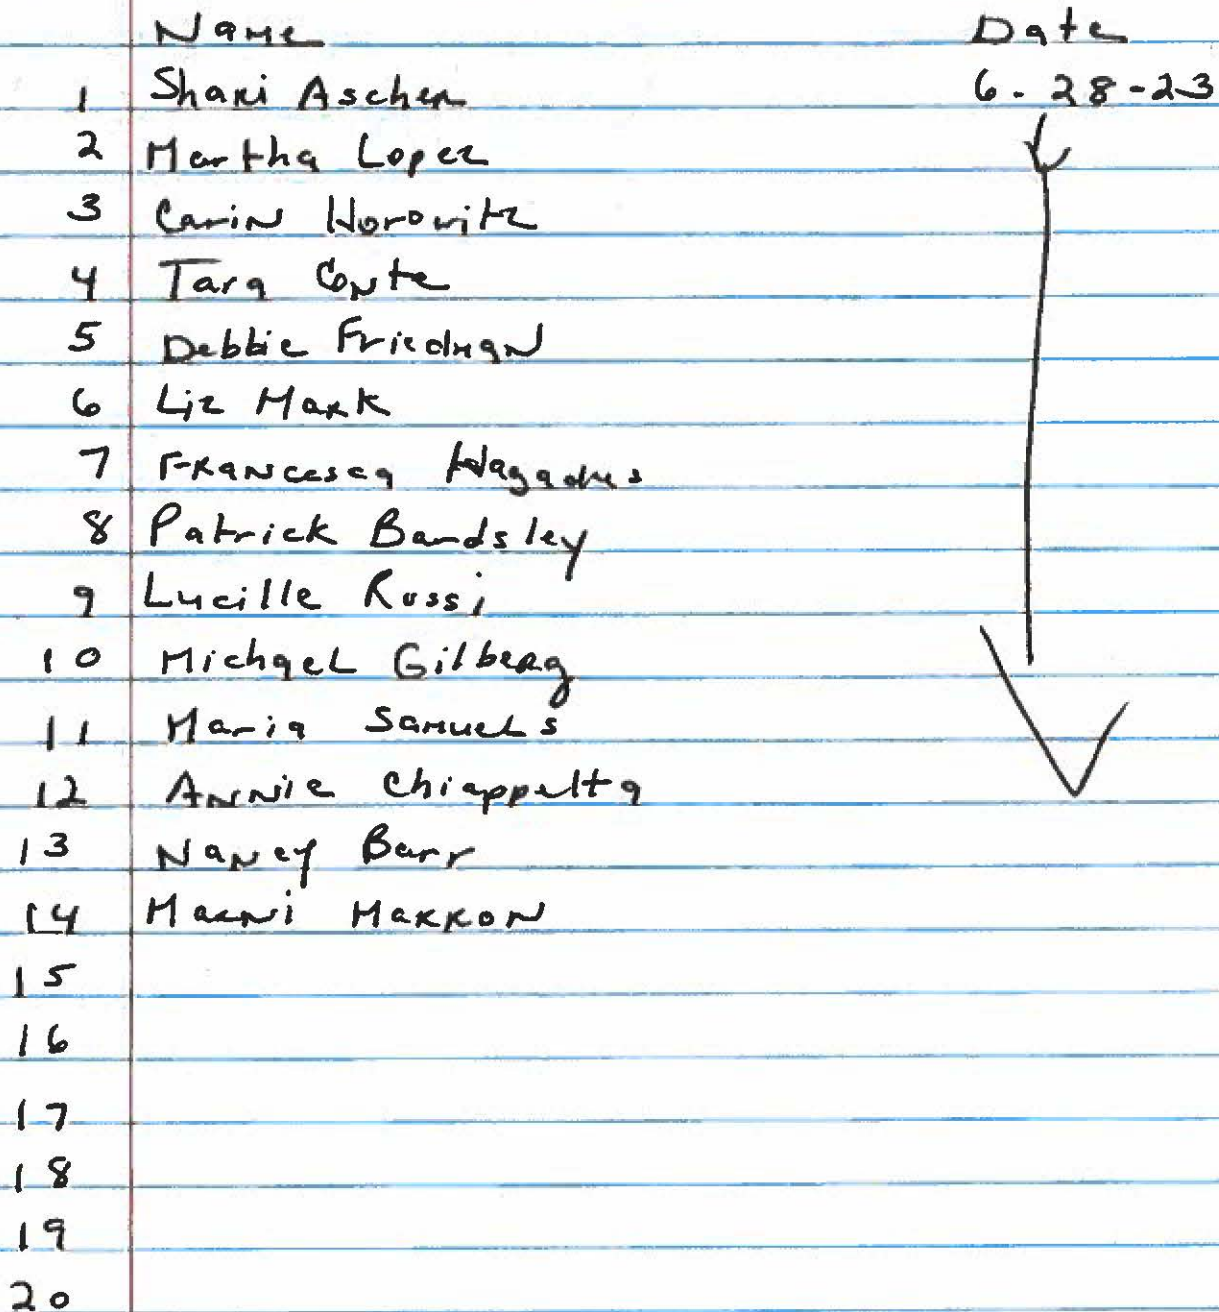 Name Date
1 Shari Ascher 6-28-23
2 Martha Lopez
3 Carin Horowitz
4 Tara Conte
5 Debbie Friedman
6 Liz Mark
7 Francesca
8 Patrick Bardsley
9 Lucille Rossi
10 Michael Gilberg
11 Maria Samuels
12 Annie Chiappetta
13 Nancy Barr
14 Marni
15
16
17
18
19
20